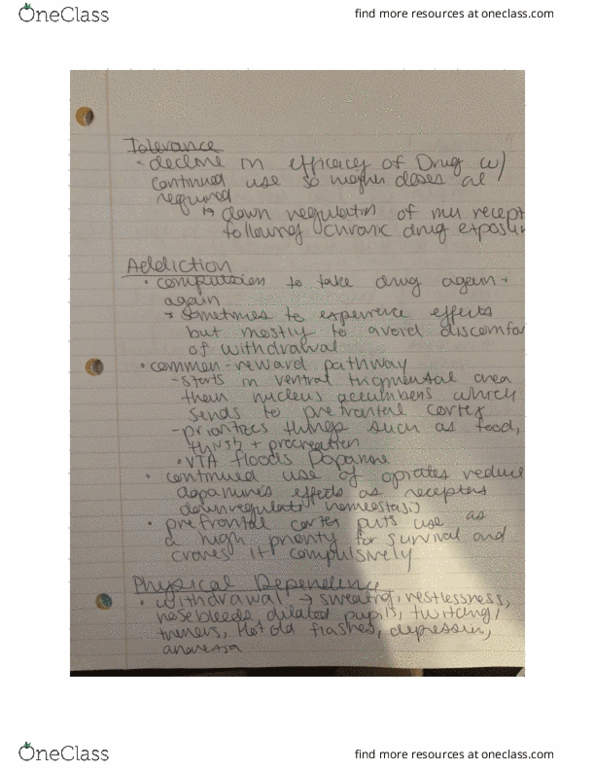 OneClass
find more resources at oneclass.com
Tolerance
· decline in efficacy of Drug w/
continued use so higher doses are
required
↳ down regulation of mu recept
following chronic drug exposur
Addiction
· compulsion to take drug again +
again
* sometimes to experience effects
but mostly to avoid discomfor
of withdrawal
· common-reward pathway
- starts in ventral tegmental area
then nucleus accumbens which
sends to prefrontal cortex
- prioritizes things such as food,
thirst + procreation
· VTA floods Dopamine
· continued use of opiates reduce
dopamine's effects as receptors
downregulate homeostasis
· prefrontal cortex puts use as
a high priority for survival and
craves it compulsively
Physical Dependency
· withdrawal → sweating, restlessness,
nosebleeds dilated pupils, twitching,
tremors, Hot cold flashes, depression,
anorexia
OneClass
find more resources at oneclass.com